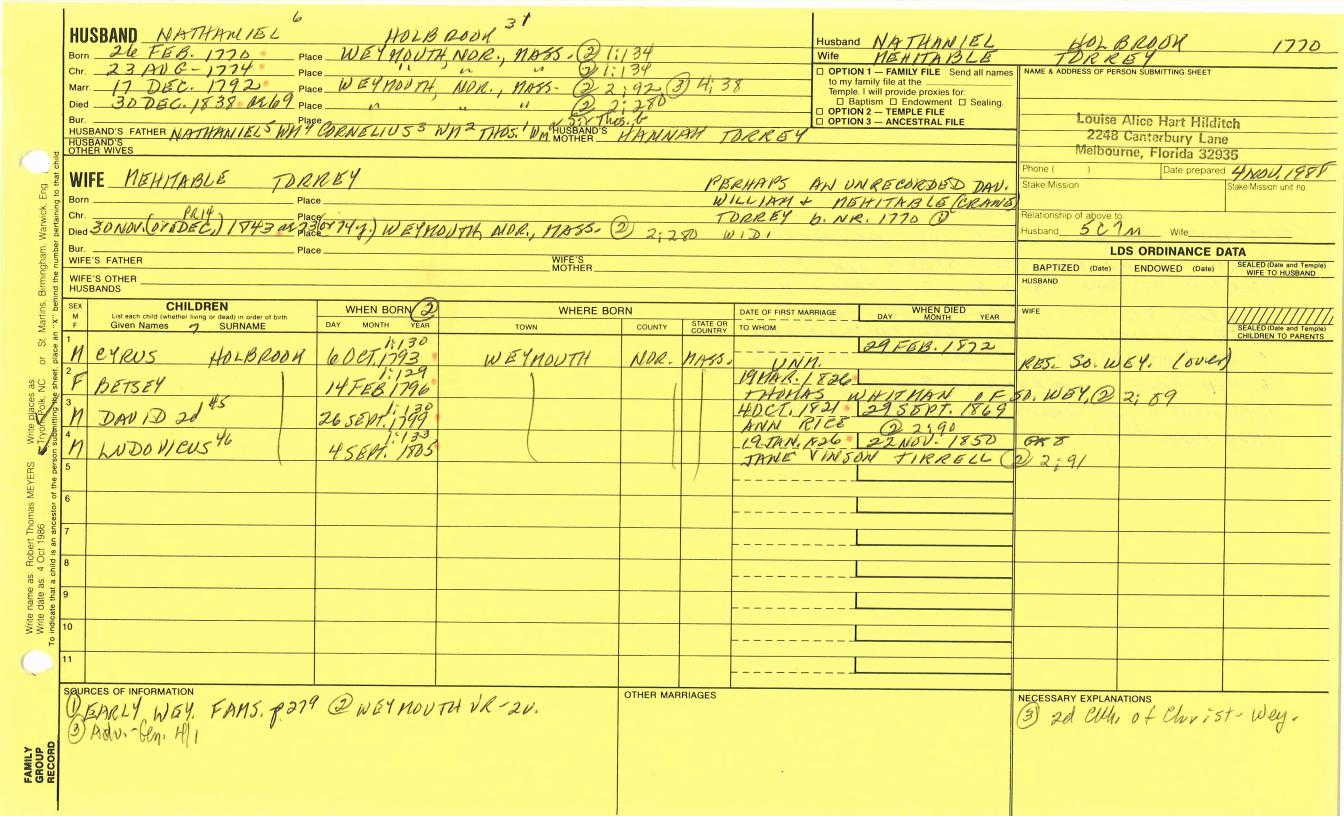 HUSBAND NATHANIEL 6 HOLBROOK 31
Born 26 FEB. 1770 Place WEYMOUTH, NOR., MASS. ② 1:134
Chr. 23 AUG - 1774 Place " " " ② 1:134
Marr 17 DEC. 1792 Place WEYMOUTH, NOR., MASS. ② 2;92, ③ 4;38
Died 30 DEC. 1838 ae 69 Place " " " ② 2;280
Bur. Place
HUSBAND'S FATHER NATHANIEL5 WM4 CORNELIUS3 WM2 THOS.1 HUSBAND'S MOTHER HANNAH TORREY
HUSBAND'S OTHER WIVES
Husband NATHANIEL HOLBROOK 1770
Wife MEHITABLE TORREY
☐ OPTION 1 — FAMILY FILE Send all names
to my family file at the
Temple. I will provide proxies for:
☐ Baptism ☐ Endowment ☐ Sealing.
☐ OPTION 2 — TEMPLE FILE
☐ OPTION 3 — ANCESTRAL FILE
NAME & ADDRESS OF PERSON SUBMITTING SHEET
Louise Alice Hart Hilditch
2248 Canterbury Lane
Melbourne, Florida 32935
Phone ( ) Date prepared 4 NOV, 1988
Stake/Mission Stake/Mission unit no.
Relationship of above to
Husband 5C7M Wife
WIFE MEHITABLE TORREY
Born Place
Chr. Place
PR14
Died 30 NOV. (or DEC.) 1843 ae 73 (or 74 y.) Place WEYMOUTH, NOR., MASS. ② 2;280 WIDI
Bur. Place
PERHAPS AN UNRECORDED DAU.
WILLIAM & MEHITABLE (CRANE)
TORREY b. NR. 1770 ①
WIFE'S FATHER WIFE'S MOTHER
WIFE'S OTHER HUSBANDS
LDS ORDINANCE DATA
BAPTIZED (Date) ENDOWED (Date) SEALED (Date and Temple) WIFE TO HUSBAND
HUSBAND
WIFE
SEALED (Date and Temple) CHILDREN TO PARENTS
SEX M F
CHILDREN
List each child (whether living or dead) in order of birth
Given Names 7 SURNAME
WHEN BORN ②
DAY MONTH YEAR
WHERE BORN
TOWN COUNTY STATE OR COUNTRY
DATE OF FIRST MARRIAGE
TO WHOM
WHEN DIED
DAY MONTH YEAR
1 M CYRUS HOLBROOK 1:130 6 OCT. 1793 WEYMOUTH NOR. MASS. 29 FEB. 1872
UNM. RES. SO. WEY. (over)
2 F BETSEY 1:129 14 FEB 1796 19 MAR. 1826
THOMAS WHITMAN OF SO. WEY. ② 2;89
3 M DAVID 2d 45 1:130 26 SEPT. 1799 4 OCT. 1821 29 SEPT. 1869
ANN RICE ② 2;90
4 M LUDOVICUS 46 1:133 4 SEPT. 1805 19 JAN. 1826 22 NOV. 1850
JANE VINSON TIRRELL ② 2;91
5
6
7
8
9
10
11
SOURCES OF INFORMATION
① EARLY WEY. FAMS. p279 ② WEYMOUTH VR-2V.
③ Adv.-Gen. 4/1
OTHER MARRIAGES
NECESSARY EXPLANATIONS
③ 2d Chh. of Christ - Wey.
Write name as: Robert Thomas MEYERS Write places as: Tryon, Polk, NC or St. Martins, Birmingham, Warwick, Eng.
Write date as: 4 Oct 1986
To indicate that a child is an ancestor of the person submitting the sheet, place an "X" behind the number pertaining to that child
FAMILY GROUP RECORD